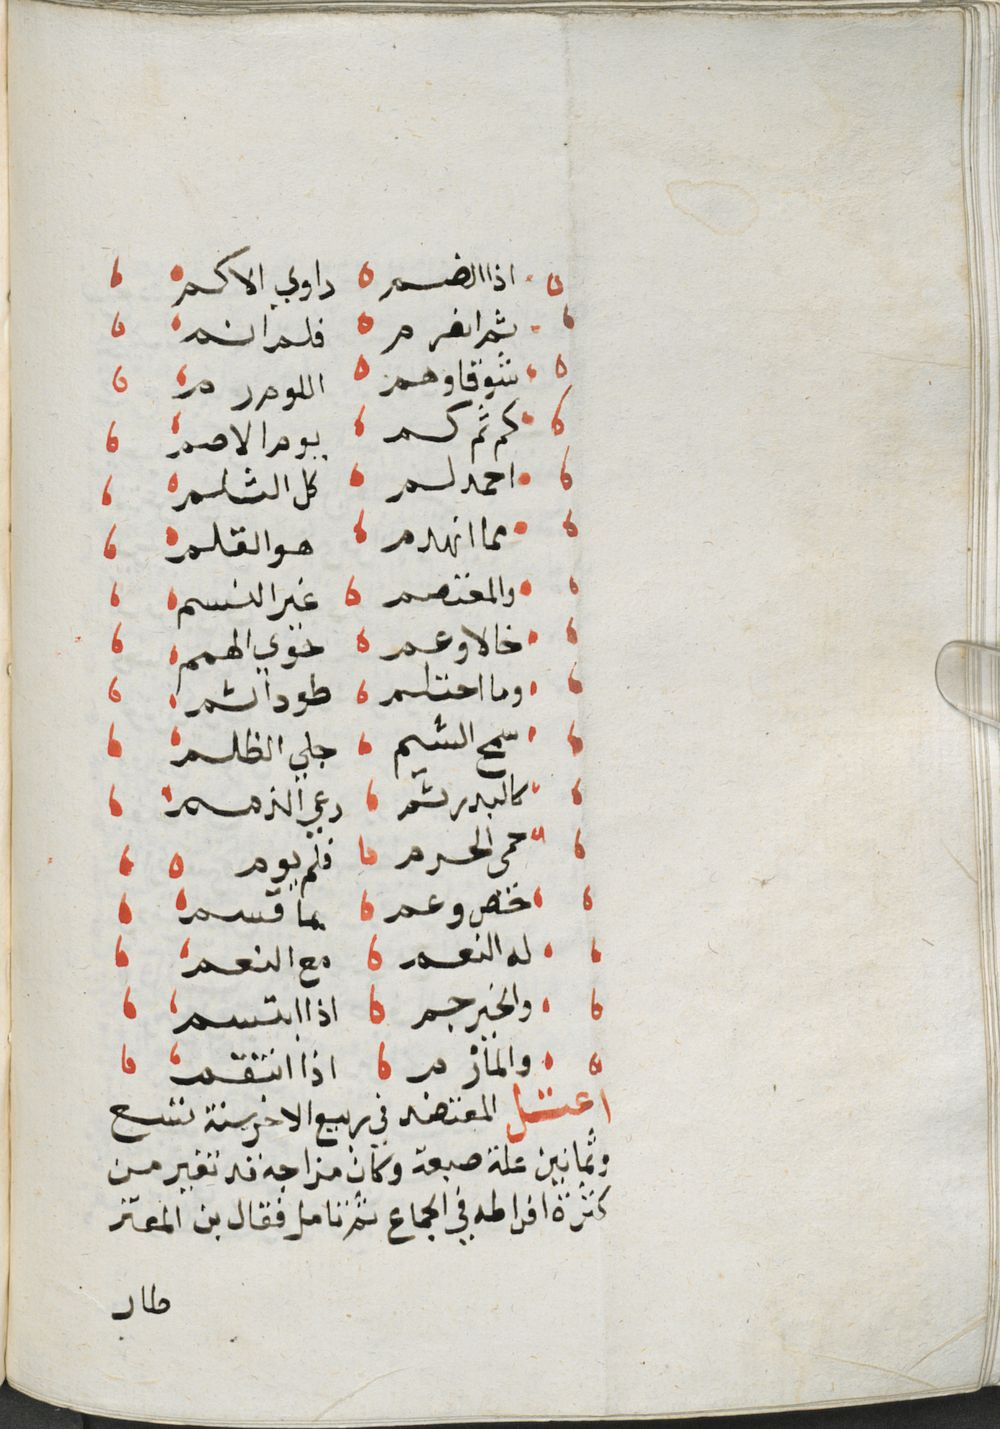 اذا الضم داوي الاكم
ثم انغرم فلم انم
شوقا وهم اللوم رم
كم ثم كم يوم الاصم
احمد لم كل الثلم
مما انهدم هو القلم
والمعتصم غير النسم
خالا وعم حوي الهمم
وما احتلم طود اشم
سمح الشيم جلي الظلم
كالبدر تم رعي الذمم
حمى الحرم فلم يوم
خص وعم بما قسم
له النعم مع النعم
والخير جم اذا ابتسم
والماء دم اذا انتقم
اعتل المعتضد في ربيع الاخر سنة تسع
وثمانين علة صعبة وكان مزاجه قد تغير من
كثرة افراطه في الجماع ثم تماثل فقال بن المعتز
طار